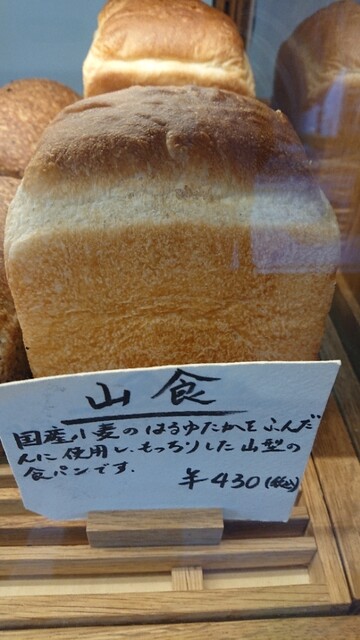 山食
国産小麦のはるゆたかをふんだ
んに使用し、もっちりした山型の
食パンです.
¥430(税込)